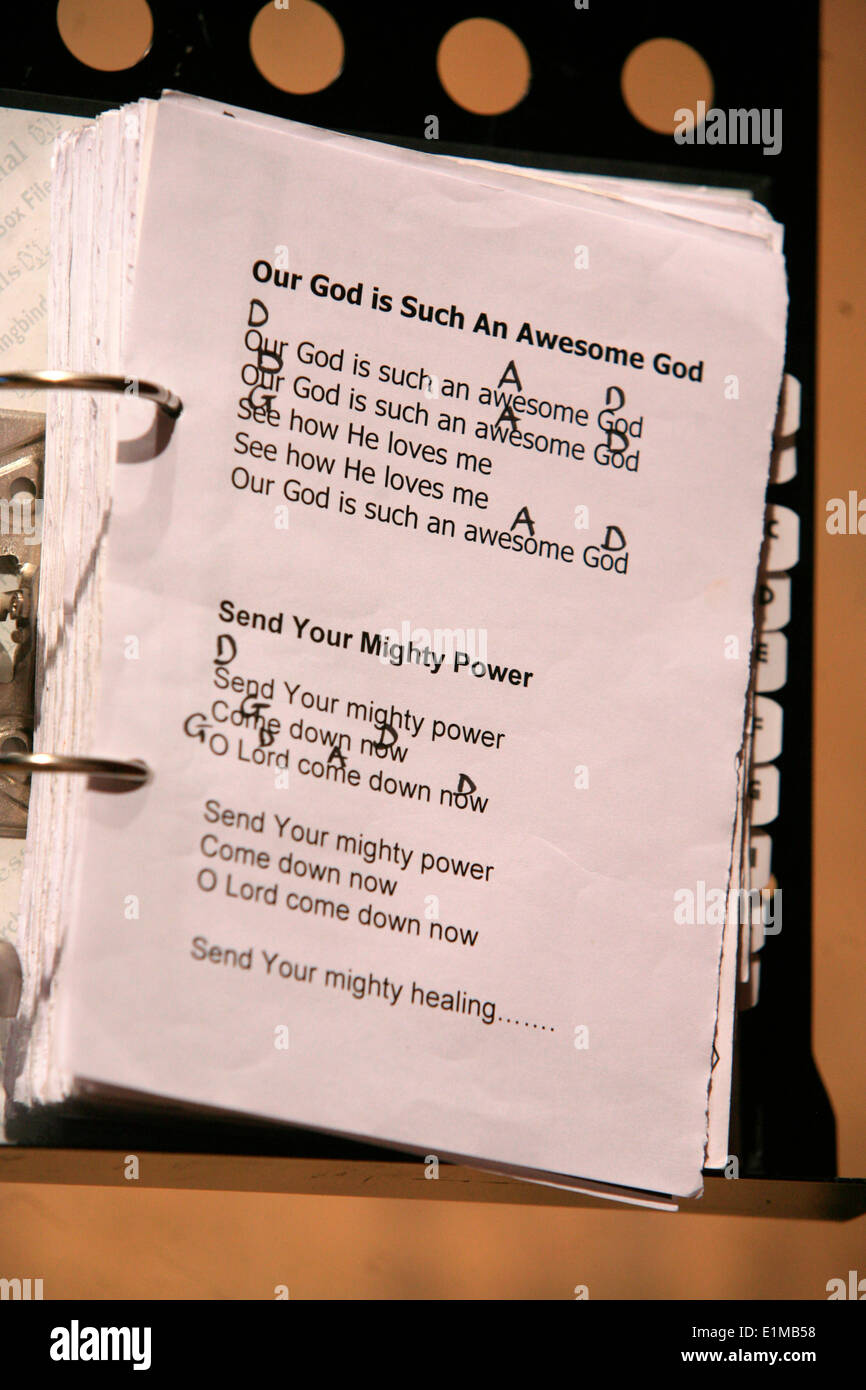 Our God is Such An Awesome God
D
Our God is such an awesome God
D A D
Our God is such an awesome God
G A D
See how He loves me
See how He loves me
A D
Our God is such an awesome God
Send Your Mighty Power
D
Send Your mighty power
G
Come down now
G D A D
O Lord come down now
D
Send Your mighty power
Come down now
O Lord come down now
Send Your mighty healing…….
Box File
C
D
E
F
alamy
Image ID: E1MB58
www.alamy.com